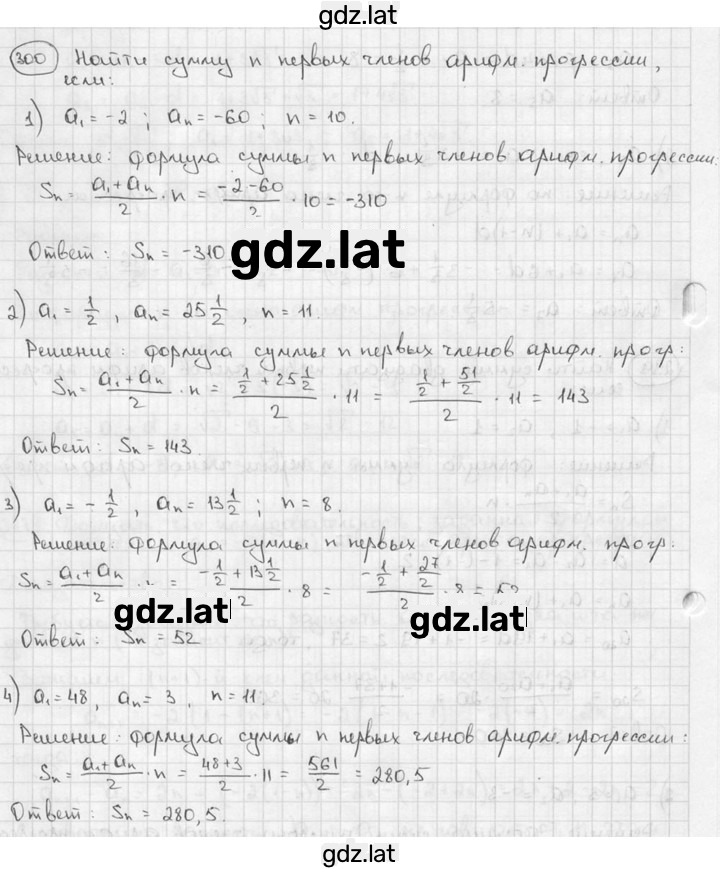 gdz.lat
300 Найти сумму n первых членов арифм. прогрессии,
если:
1) a₁ = -2 ; aₙ = -60 ; n = 10.
Решение: формула суммы n первых членов арифм. прогрессии:
Sₙ = (a₁ + aₙ)/2 · n = (-2 -60)/2 · 10 = -310
Ответ: Sₙ = -310
gdz.lat
2) a₁ = 1/2 , aₙ = 25 1/2 , n = 11.
Решение: формула суммы n первых членов арифм. прогр:
Sₙ = (a₁ + aₙ)/2 · n = (1/2 + 25 1/2)/2 · 11 = (1/2 + 51/2)/2 · 11 = 143
Ответ: Sₙ = 143.
3) a₁ = - 1/2 , aₙ = 13 1/2 ; n = 8.
Решение: формула суммы n первых членов арифм. прогр:
Sₙ = (a₁ + aₙ)/2 · = (- 1/2 + 13 1/2)/2 · 8 = (- 1/2 + 27/2)/2 · 8 = 52
gdz.lat gdz.lat
Ответ: Sₙ = 52
4) a₁ = 48, aₙ = 3, n = 11.
Решение: формула суммы n первых членов арифм. прогрессии:
Sₙ = (a₁ + aₙ)/2 · n = (48 + 3)/2 · 11 = 561/2 = 280,5
Ответ: Sₙ = 280,5.
gdz.lat